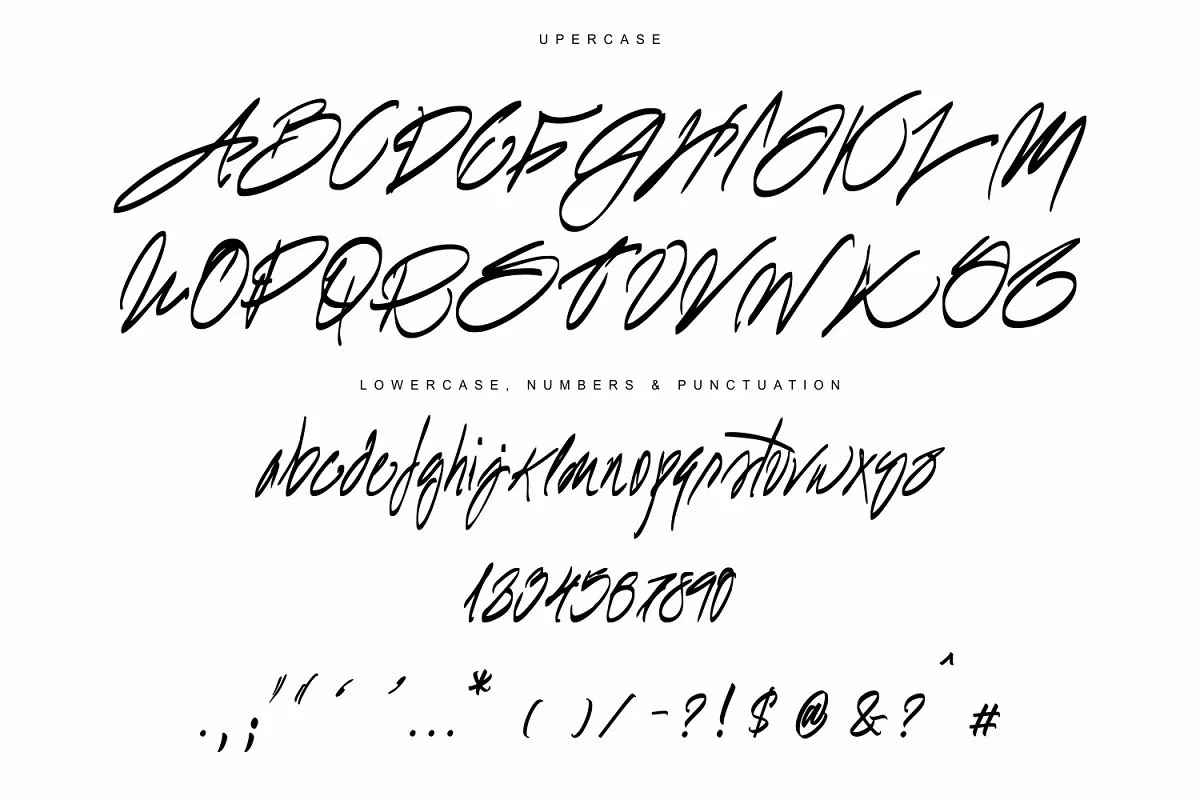 UPERCASE
ABCDEFGHIJKLM
NOPQRSTUVWXYZ
LOWERCASE, NUMBERS & PUNCTUATION
abcdefghijklmnopqrstuvwxyz
1234567890
.,;"“‘’...*()/-?!$@&?^#